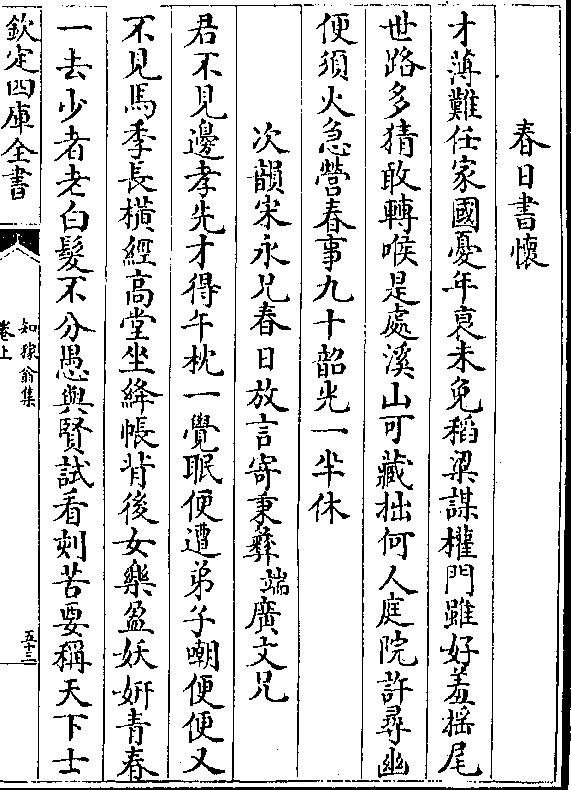 春日書懷
才薄難任家國憂年衰未免稻粱謀權門雖好羞揺尾
世路多猜敢轉喉是處溪山可藏拙何人庭院許尋幽
便須火急營春事九十韶光一半休
次韻宋永兄春日放言寄秉彝端廣文兄
君不見邊孝先才得午枕一覺眠便遭弟子嘲便便又
不見馬季長橫經高堂坐絳帳背後女樂盈妖妍青春
一去少者老白髮不分愚與賢試看刻苦要稱天下士
欽定四庫全書
知稼翁集
卷上
五十三